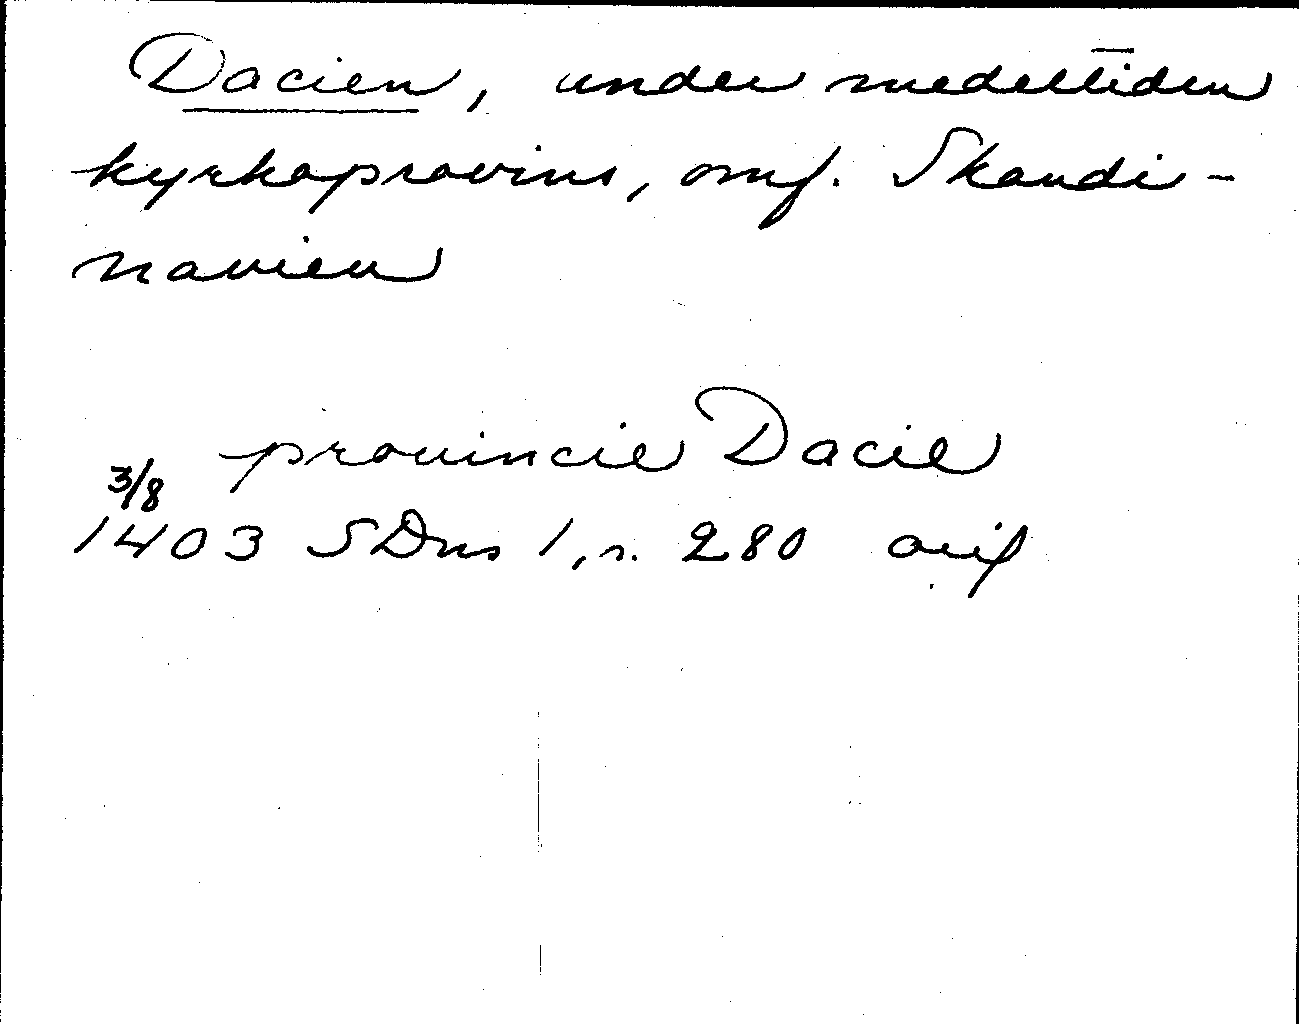 Dacien, under medeltiden
kyrkoprovins, omf. Skandi-
navien
provincie Dacie
3/8
1403 SDns 1, n. 280 avif